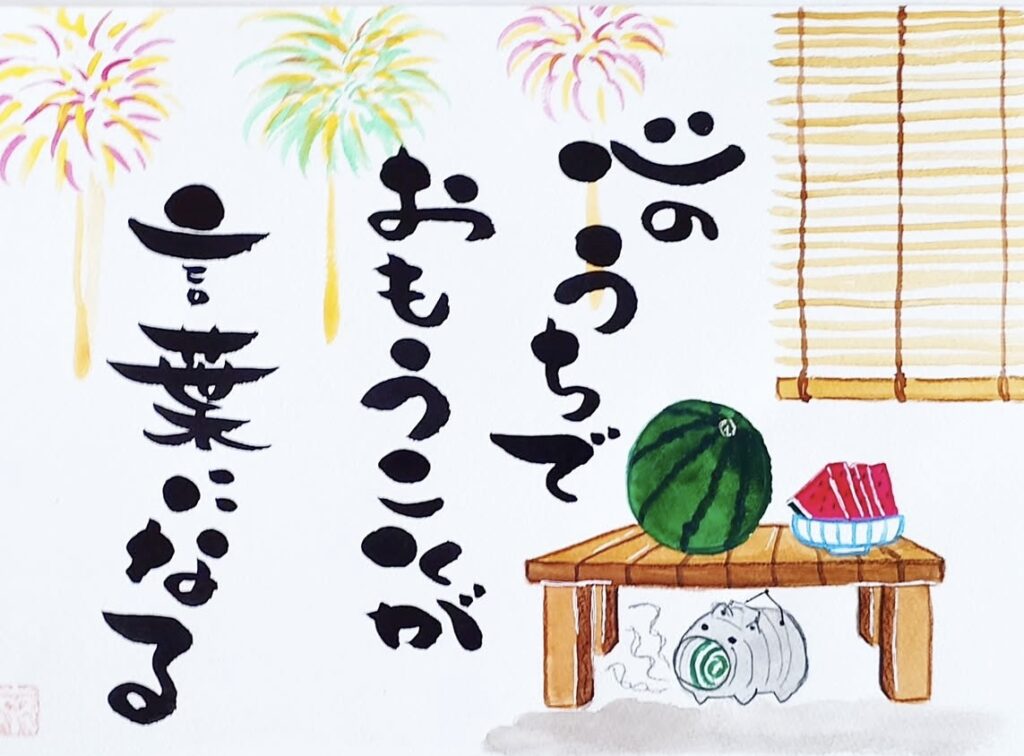 心のうちで
おもうことが
言葉になる